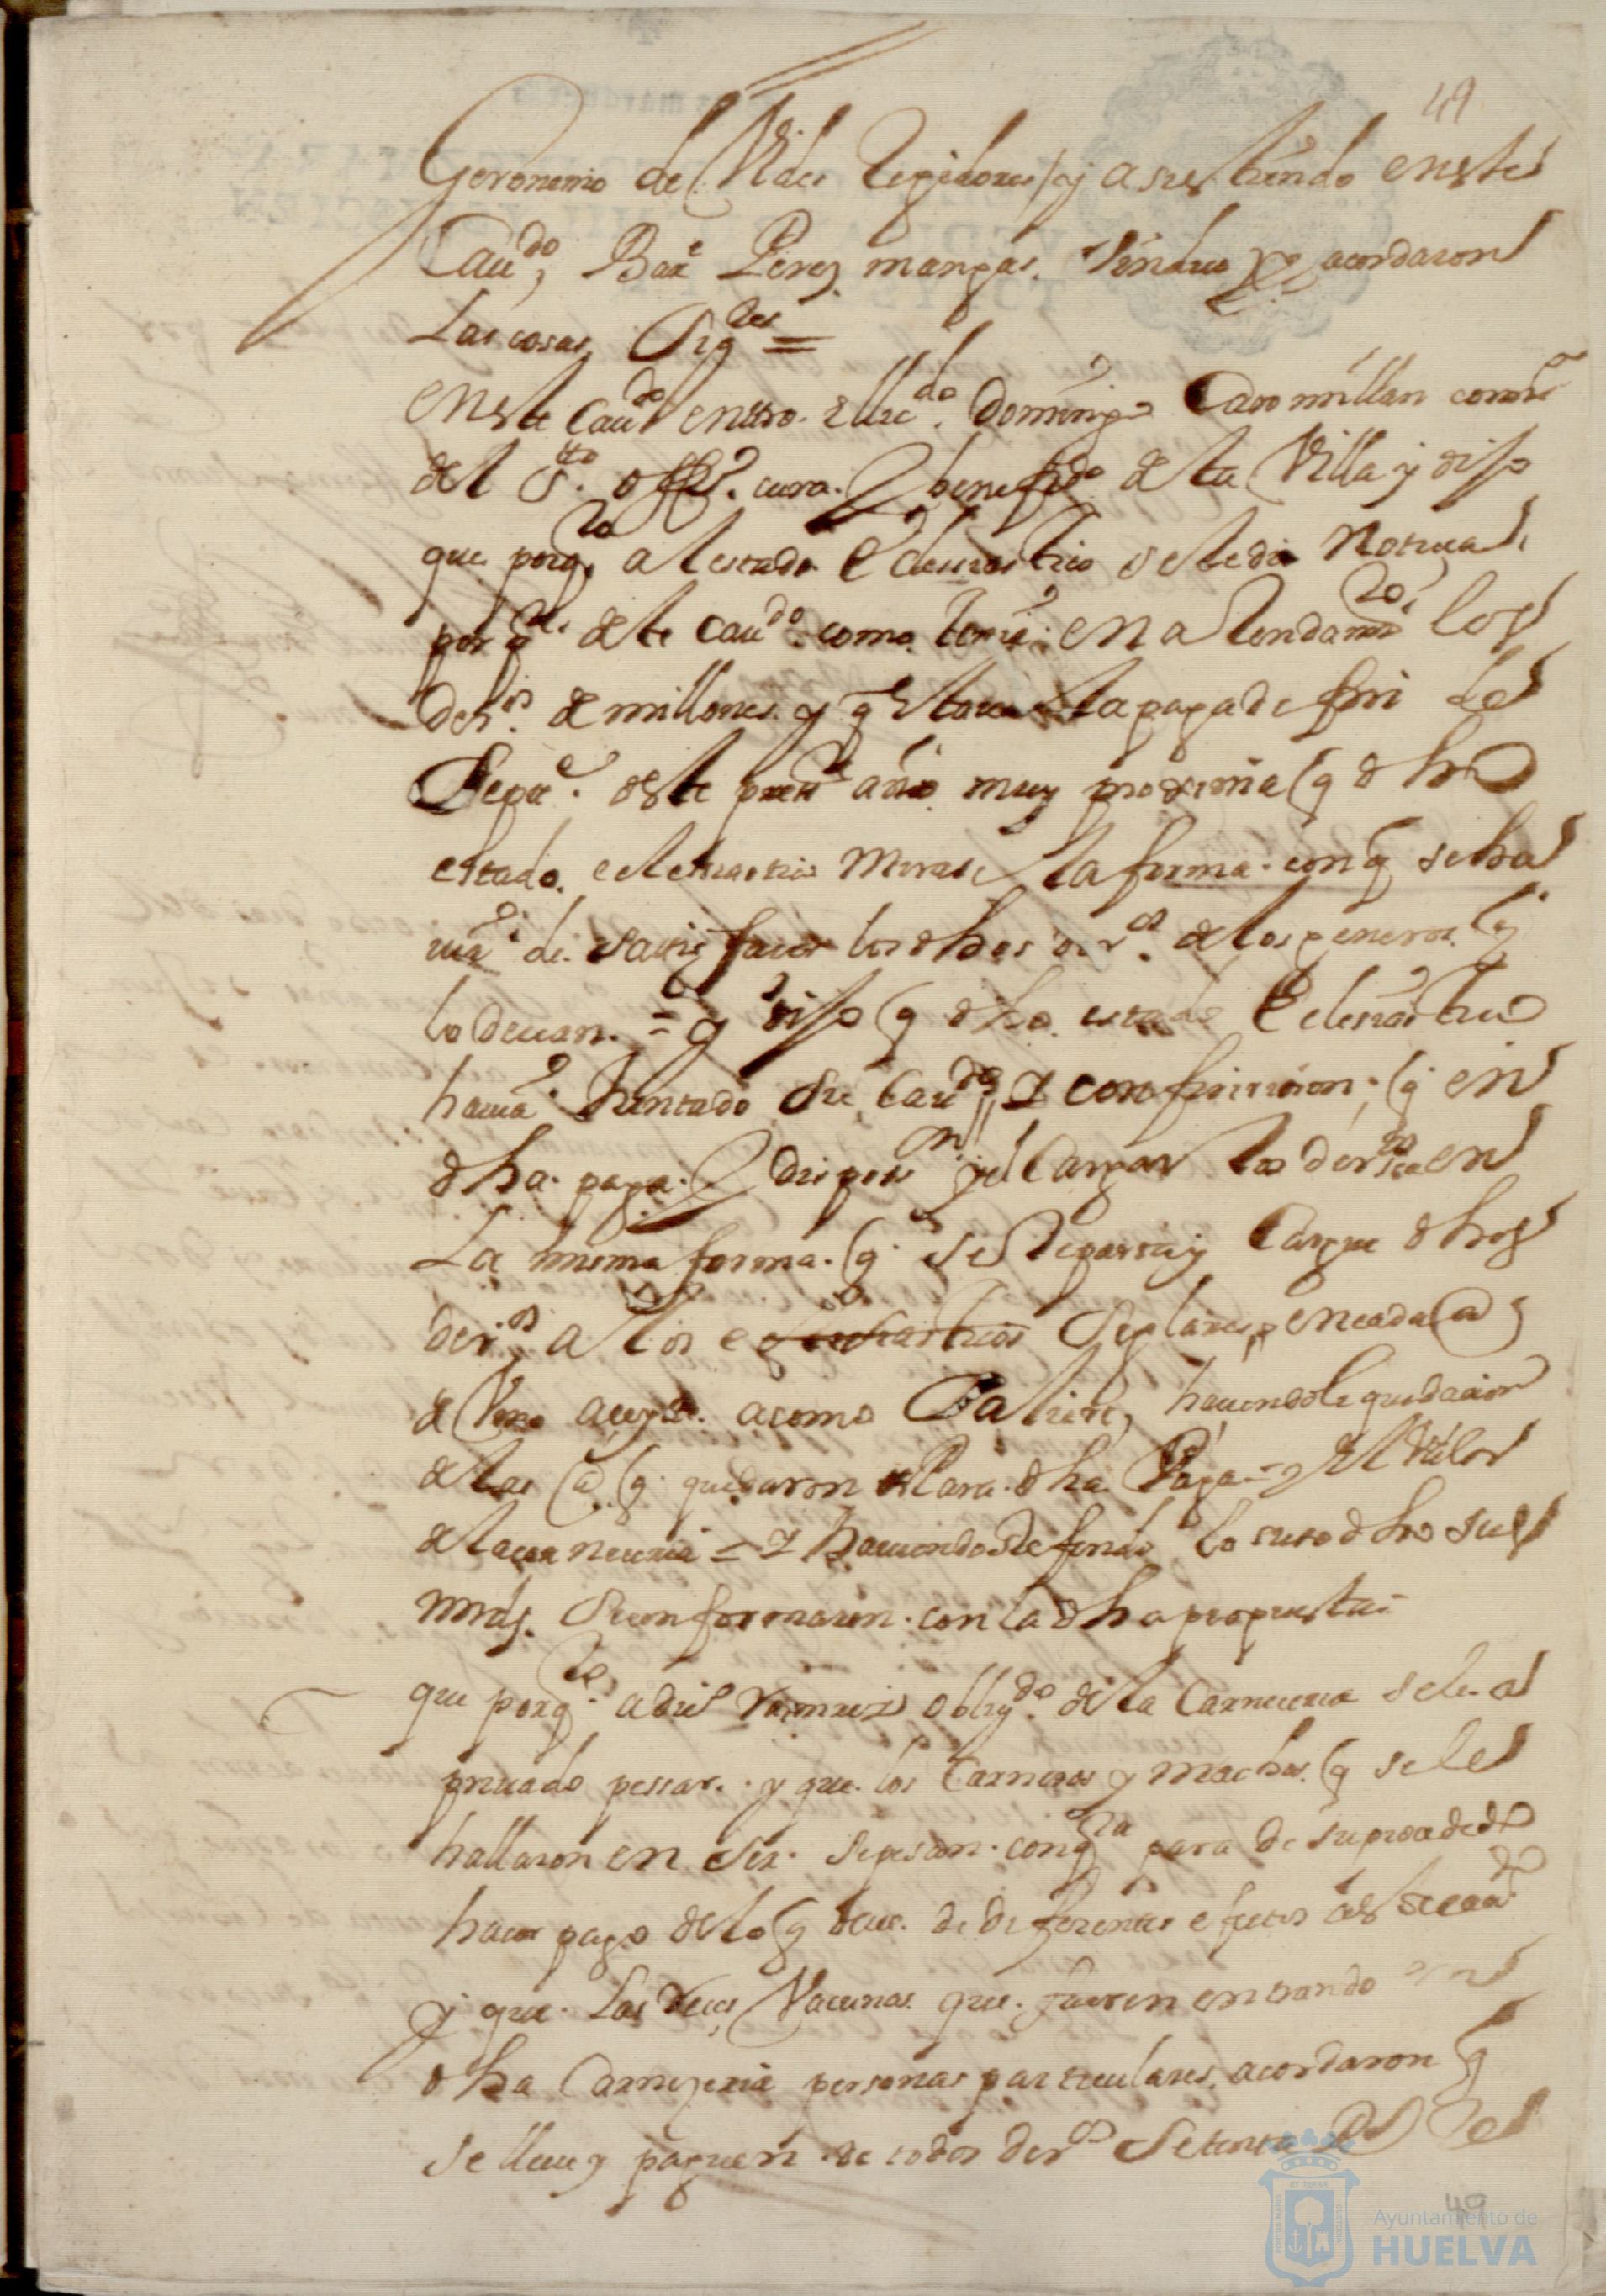 49
Geronimo de Vides Regidores y asistiendo en este
Cau.do, Bar.e Perez mangas. Sindico acordaron
Las cosas Sig.tes =
en este Cau.do entro el lic.do Domingo Caro millan comis.o
del S.to off.o cura. y benefi.do de sta Villa y dijo
que porq.to al estado eclesiastico se le dio Noticia
por p.te deste cau.do como tenia en arrendam.to los
der.os de millones y q estaua la paga de fin de
Sepe. deste press.te año muy proxima q dho
estado eclesiastico mirase la forma con q se ha
uia de satisfacer los dhos der.os de los generos q
lo deuian. = y dijo q dho estado Eclesiastico
hauia Juntado su Cau.do y confirieron q en
dha paga. y dispon.n el Cargar los der.os sea en
La misma forma. q se Reparta y Cargue dhos
der.os a los Seglares en cada @
de Vino a como Saliere, haciendole quedacion
de las @ q quedaron Para dha Paga = y el Valor
de la carneceria = y hauiendose oydo lo suso dho sus
mrds. Se conformaron con la dha propuesta
que porq.to a dies obligdo de la Carneceria se le a
priuado pessar. y que los Carneros y machos q se le
hallaron en ser. se pesan con q.ta para de su procedido
hacer pago de lo q deue. de diferentes efectos a este cau.do
y que Las Reces Vacunas que fueren entrando en
dha Carnyeria personas particulares, acordaron q
se lleue y paguen de todos der.os Setenta R.s de
49
Ayuntamiento de
HUELVA